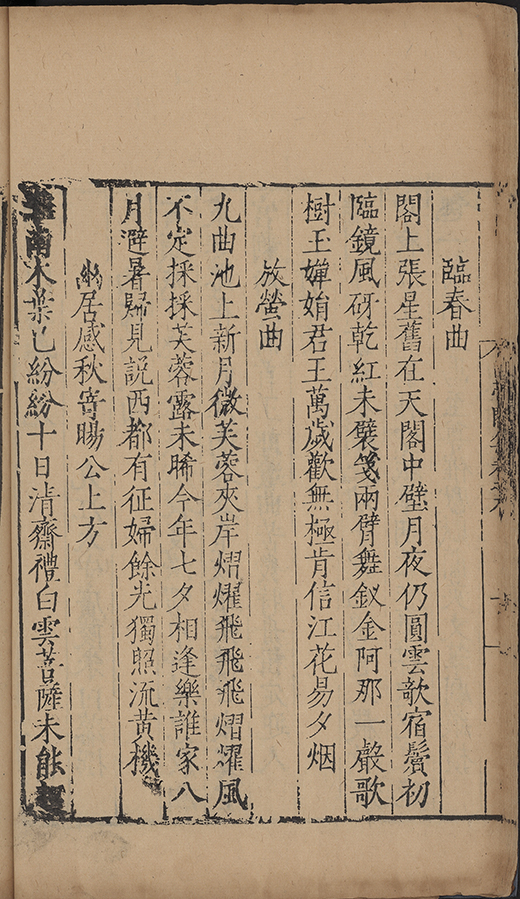 臨春曲
閣上張星舊在天閣中璧月夜仍圓雲歌宿鬢初
臨鏡風砑乾紅未襞箋兩臂舞釵金阿那一聲歌
樹玉嬋娟君王萬歲歡無極肯信江花易夕烟
放螢曲
九曲池上新月微芙蓉夾岸熠燿飛飛飛熠燿風
不定採採芙蓉露未晞今年七夕相逢樂誰家八
月避暑歸見説西都有征婦餘光獨照流黃機
幽居感秋寄暘公上方
南木葉已紛紛十日清齋禮白雲菩薩未能